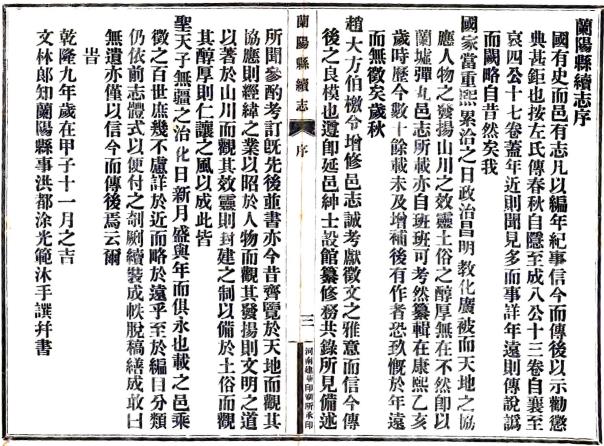 蘭陽縣續志序
國有史而邑有志凡以編年紀事信今而傳後以示勸懲
典甚鉅也按左氏傳春秋自隱至成八公十三卷自襄至
哀四公十七卷蓋年近則聞見多而事詳年遠則傳說譌
而闕略自昔然矣我
國家當重熙累洽之日政治昌明教化廣被而天地之協
應人物之發揚山川之效靈土俗之醇厚無在不然即以
蘭墟彈丸邑志所載亦自班班可考然纂輯在康熙乙亥
歲時歷今數十餘載未及增補後有作者恐致慨於年遠
而無徵矣歲秋
趙大方伯檄令增修邑志誠考獻徵文之雅意而信今傳
後之良模也遵即延邑紳士設館纂修務共錄所見備述
蘭陽縣續志
序
三
河南建華印刷所承印
所聞參酌考訂既先後並書亦今昔齊覽於天地而觀其
協應則經緯之業以昭於人物而觀其發揚則文明之道
以著於山川而觀其效靈則封建之制以備於土俗而觀
其醇厚則仁讓之風以成此皆
聖天子無疆之治化日新月盛與年而俱永也載之邑乘
徵之百世庶幾不慮詳於近而略於遠乎至於編目分類
仍依前志體式以便付之剞劂續裝成帙脫稿繕成敢曰
無遺亦僅以信今而傳後焉云爾
旹
乾隆九年歲在甲子十一月之吉
文林郎知蘭陽縣事洪都涂光範沐手譔幷書